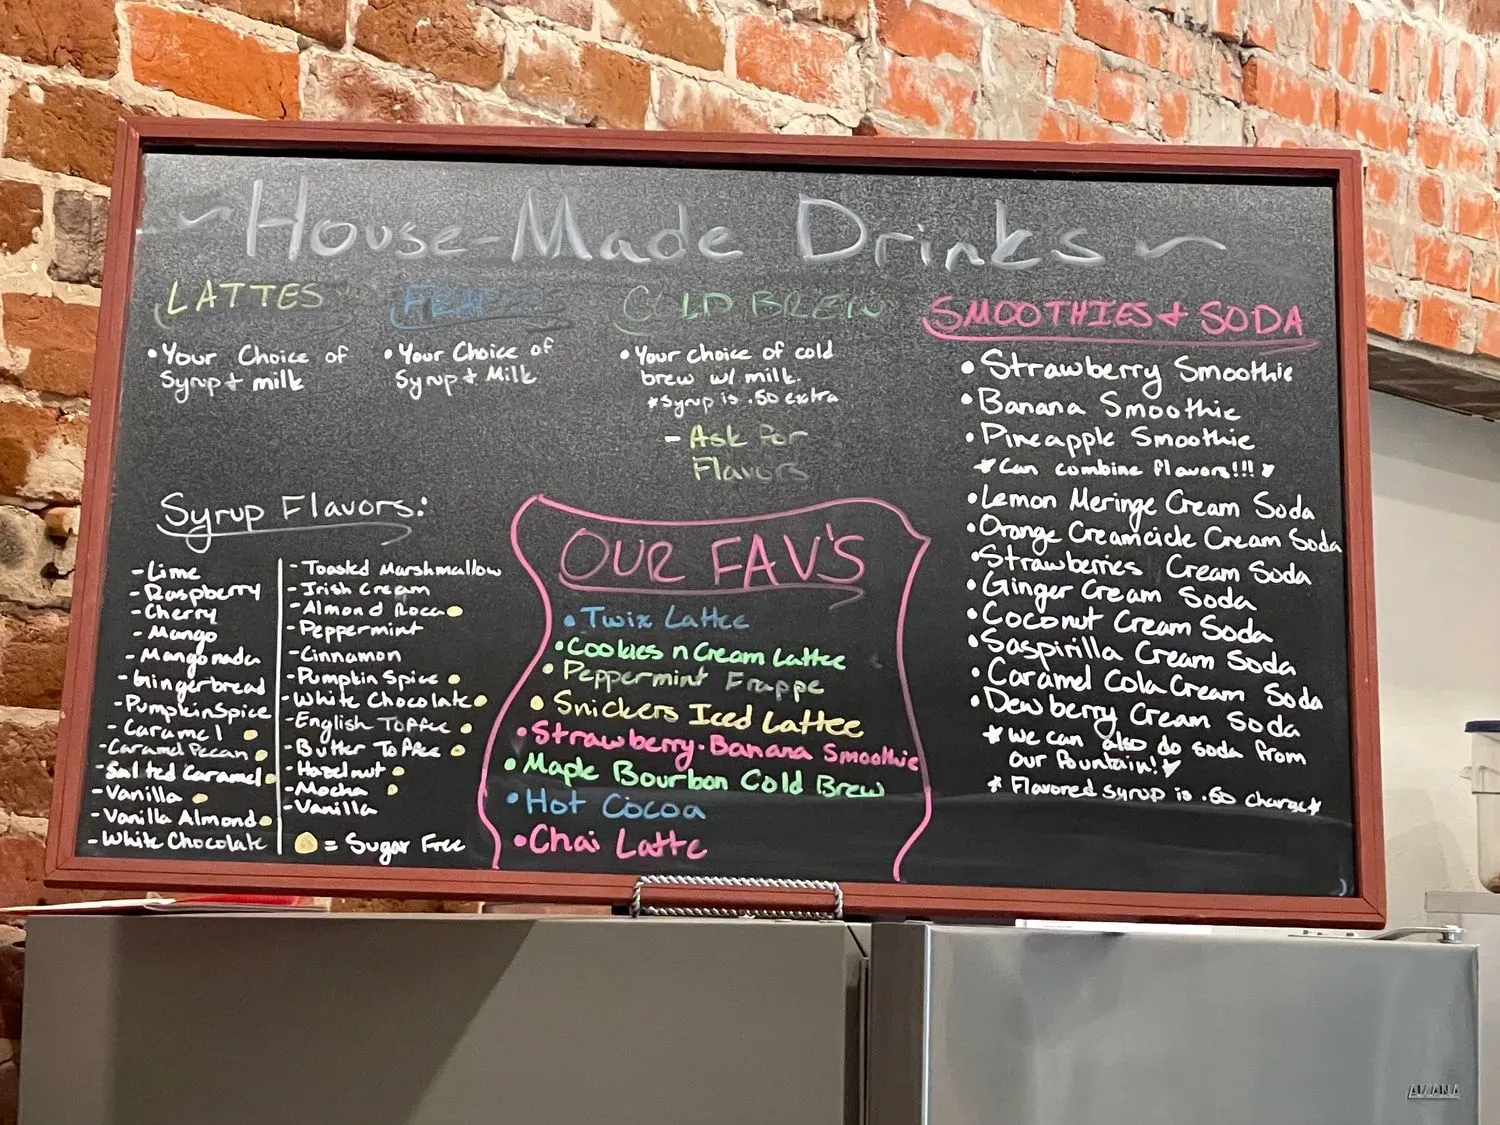 ~House-Made Drinks~
LATTES
• Your Choice of
Syrup + milk
FRAP
• Your Choice of
Syrup + Milk
COLD BREW
• Your choice of cold
brew w/ milk.
*Syrup is .50 extra
- Ask For
Flavors
SMOOTHIES + SODA
• Strawberry Smoothie
• Banana Smoothie
• Pineapple Smoothie
*Can combine flavors!!!
• Lemon Meringe Cream Soda
• Orange Creamcicle Cream Soda
• Strawberries Cream Soda
• Ginger Cream Soda
• Coconut Cream Soda
• Saspirilla Cream Soda
• Caramel Cola Cream Soda
• Dewberry Cream Soda
* We can also do soda from
our fountain!
* Flavored syrup is .60 charge*
Syrup Flavors:
- Lime
- Raspberry
- Cherry
- Mango
- Mangonada
- Gingerbread
- Pumpkin Spice
- Caramel
- Caramel Pecan
- Salted Caramel
- Vanilla
- Vanilla Almond
- White Chocolate
- Toasted Marshmallow
- Irish Cream
- Almond Roca
- Peppermint
- Cinnamon
- Pumpkin Spice
- White Chocolate
- English Toffee
- Butter Toffee
- Hazelnut
- Mocha
- Vanilla
= Sugar Free
OUR FAV'S
• Twix Lattee
• Cookies n Cream Lattee
• Peppermint Frappe
• Snickers Iced Lattee
• Strawberry-Banana Smoothie
• Maple Bourbon Cold Brew
• Hot Cocoa
• Chai Latte
AMANA